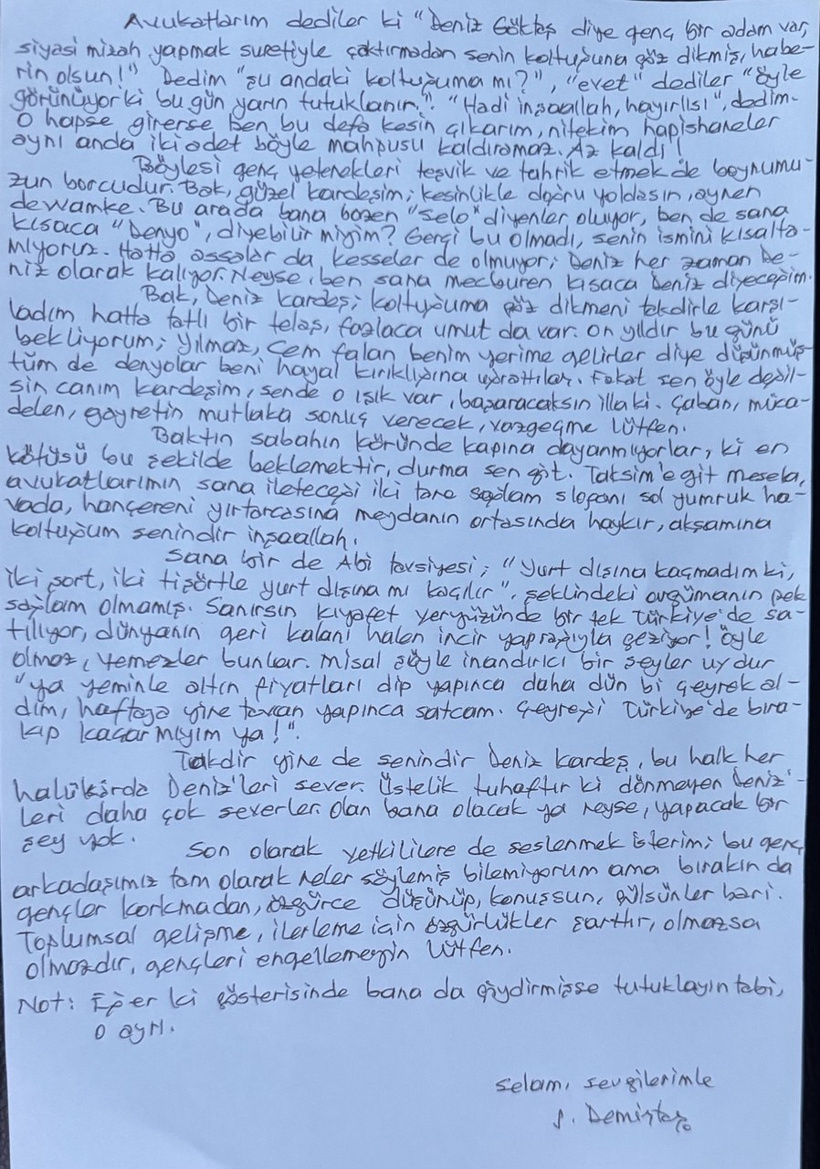 Avukatlarım dediler ki "Deniz Göktaş diye genç bir adam var,
siyasi mizah yapmak suretiyle çaktırmadan senin koltuğuna göz dikmiş, habe-
rin olsun!" Dedim "şu andaki koltuğuma mı?", "evet" dediler "öyle
görünüyor ki bugün yarın tutuklanır." "Hadi inşaallah, hayırlısı", dedim.
O hapse girerse ben bu defa kesin çıkarım, nitekim hapishaneler
aynı anda iki adet böyle mahpusu kaldıramaz. Az kaldı!
Böylesi genç yetenekleri teşvik ve tahrik etmek de boynumu-
zun borcudur. Bak, güzel kardeşim; kesinlikle doğru yoldasın, aynen
dewamke. Bu arada bana bazen "Selo" diyenler oluyor, ben de sana
kısaca "Denyo", diyebilir miyim? Gerçi bu olmadı, senin ismini kısalta-
mıyoruz. Hatta assalar da, kesseler de olmuyor; Deniz her zaman De-
niz olarak kalıyor. Neyse, ben sana mecburen kısaca Deniz diyeceğim.
Bak, Deniz kardeş; koltuğuma göz dikmeni takdirle karşı-
ladım hatta tatlı bir telaş, fazlaca umut da var. On yıldır bu günü
bekliyorum; Yılmaz, Cem falan benim yerime gelirler diye düşünmüş-
tüm de denyolar beni hayal kırıklığına uğrattılar. Fakat sen öyle değil-
sin canım kardeşim, sende o ışık var, başaracaksın illaki. Çaban, müca-
delen, gayretin mutlaka sonuç verecek, vazgeçme lütfen.
Baktın sabahın köründe kapına dayanmıyorlar, ki en
kötüsü bu şekilde beklemektir, durma sen git. Taksim'e git mesela,
avukatlarımın sana ileteceği iki tane sağlam sloganı sol yumruk ha-
vada, hançereni yırtarcasına meydanın ortasında haykır, akşamına
koltuğum senindir inşaallah.
Sana bir de Abi tavsiyesi; "Yurt dışına kaçmadım ki,
iki şort, iki tişörtle yurt dışına mı kaçılır", şeklindeki argümanın pek
sağlam olmamış. Sanırsın kıyafet yeryüzünde bir tek Türkiye'de sa-
tılıyor, dünyanın geri kalanı halen incir yaprağıyla geziyor! Öyle
olmaz, yemezler bunlar. Misal şöyle inandırıcı bir şeyler uydur
"ya yeminle altın fiyatları dip yapınca daha dün bi çeyrek al-
dım, haftaya yine tavan yapınca satcam. Çeyreği Türkiye'de bıra-
kıp kaçar mıyım ya!".
Takdir yine de senindir Deniz kardeş, bu halk her
halükârda Deniz'leri sever. Üstelik tuhaftır ki dönmeyen Deniz'-
leri daha çok severler. Olan bana olacak ya neyse, yapacak bir
şey yok.
Son olarak yetkililere de seslenmek isterim; bu genç
arkadaşımız tam olarak neler söylemiş bilemiyorum ama bırakın da
gençler korkmadan, özgürce düşünüp, konuşsun, gülsünler bari.
Toplumsal gelişme, ilerleme için özgürlükler şarttır, olmazsa
olmazdır, gençleri engellemeyin lütfen.
Not: Eğer ki gösterisinde bana da giydirmişse tutuklayın tabi,
o ayrı.
Selam, sevgilerimle
S. Demirtaş